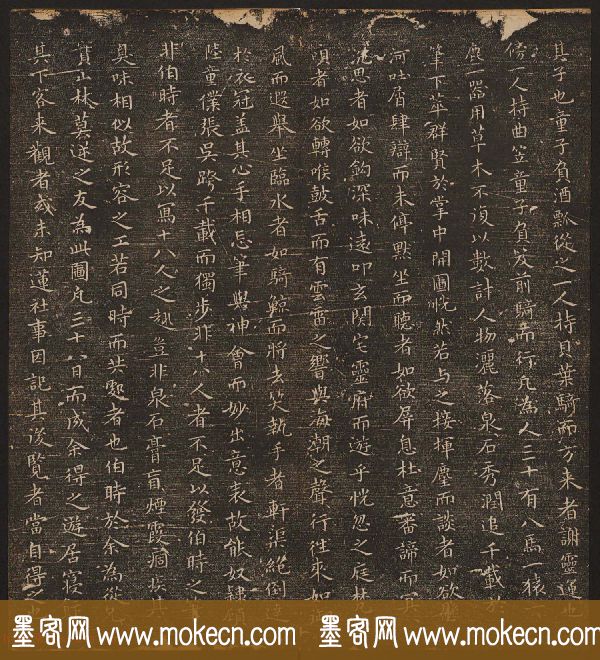 其子也童子負酒瓢從之一人持貝葉騎而方来者謝靈運也
傍一人持曲笠童子負笈前騎而行凡為人三十有八馬一猿一
鹿一器用草木不復以數計人物灑落泉石秀潤追千載於
筆下萃群賢於掌中開圖恍然若与之接揮麈而談者如欲
河吐屑肆辯而未停默坐而聽者如欲屏息杜意審諦而冥
沉思者如欲鈎深味遠叩玄関宅靈府而遊乎恍忽之庭
唄者如欲轉喉鼓舌而有雲雷之響與海潮之聲行往來如
風而遐舉坐臨水者如騎鯨而將去笑執手者軒渠絕倒
於衣冠盖其心手相忘筆與神會而妙出意表故能奴隸
陸童僕張吳跨千載而獨步非十八人者不足以發伯時之
非伯時者不足以寫十八人之趣豈非泉石膏肓煙霞痼疾其
臭味相似故形容之工若同時而共處者也伯時於余為從
實山林莫逆之友為此圖凡三十八日而成余得之遊居寢
其下客来觀者或未知蓮社事因記其後覽者當自得之
墨客网 www.mokecn.com 墨客网 www.mokecn.com